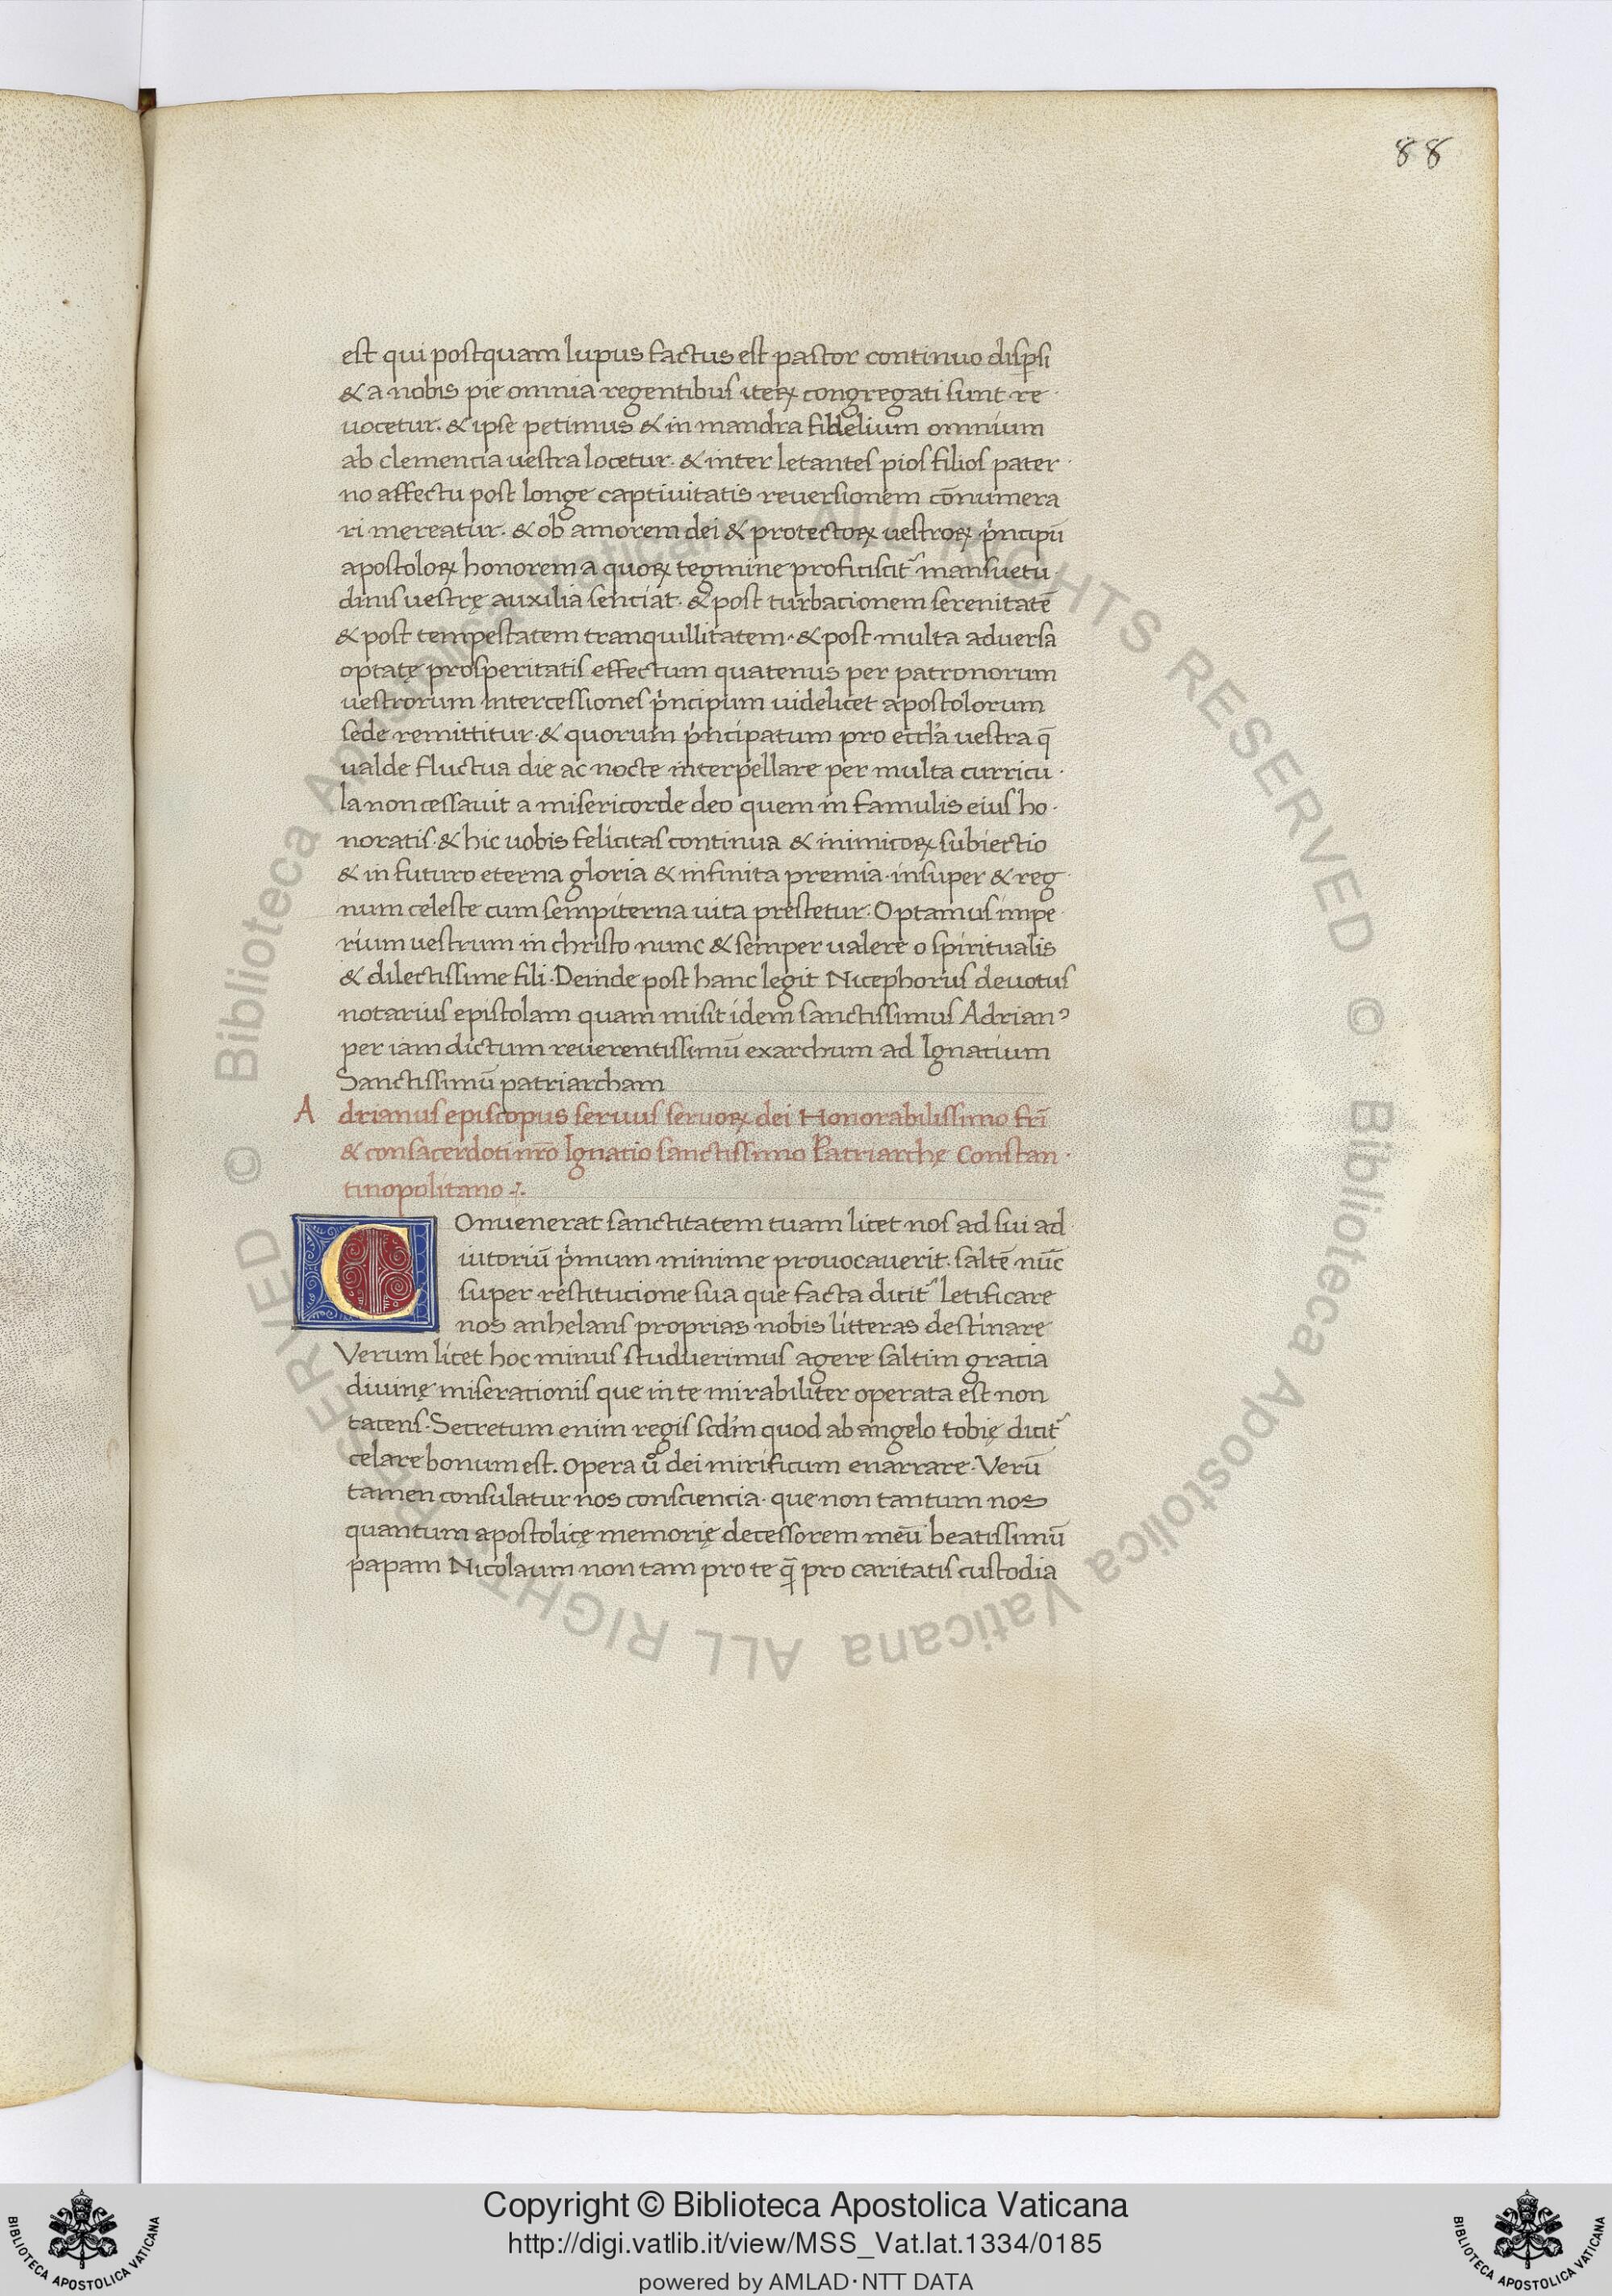 88
est qui postquam lupus factus est pastor continuo disꝑsi
& a nobis pie omnia regentibus iteꝝ congregati sunt re
uocetur. & ipse petimus & in mandra fidelium omnium
ab clemencia uestra locetur. & inter letantes pios filios pater
no affectu post longe captiuitatis reuersionem cōnumera
ri mereatur. & ob amorem dei & protectoꝝ uestroꝝ pͥncipū
apostoloꝝ honorem a quoꝝ tegmine proficiscit᷑ mansuetu
dinis uestrę auxilia senciat. & post turbacionem serenitatē
& post tempestatem tranquillitatem. & post multa aduersa
optatę prosperitatis effectum quatenus per patronorum
uestrorum intercessiones pͥncipum uidelicet apostolorum
sede remittitur. & quorum pͥncipatum pro eccl'a uestra q̄
ualde fluctua die ac nocte interpellare per multa curricu
la non cessauit a misericorde deo quem in famulis eius ho
noratis. & hic uobis felicitas continua & inimicoꝝ subiectio
& in futuro eterna gloria & infinita premia. insuper & reg
num celeste cum sempiterna uita prestetur: Optamus impe
rium uestrum in christo nunc & semper ualere o spiritualis
& dilectissime fili. Deinde post hanc legit Nicephorus deuotus
notarius epistolam quam misit idem sanctissimus Adrianꝰ
per iam dictum reuerentissimū exarchum ad Ignatium
Sanctissimū patriarcham
Adrianus episcopus seruus seruoꝝ dei Honorabilissimo fr̄i
& consacerdoti nr̄o Ignatio sanctissimo Patriarchę Constan
tinopolitano
COnuenerat sanctitatem tuam licet nos ad sui ad
iutoriū pͥmum minime prouocauerit. saltē nūc
super restitucione sua que facta dicit᷑ letificare
nos anhelans proprias nobis litteras destinare
Verum licet hoc minus studuerimus agere saltim gratia
diuinę miserationis que in te mirabiliter operata est non
tacens. Secretum enim regis scd'm quod ab angelo tobię dicit᷑
celare bonum est. opera uͦ dei mirificum enarrare. Verū
tamen consulatur nos consciencia. que non tantum nos
quantum apostolicę memorię decessorem meū beatissimū
papam Nicolaum non tam pro te q̄ pro caritatis custodia
© Biblioteca Apostolica Vaticana ALL RIGHTS RESERVED
© Biblioteca Apostolica Vaticana ALL RIGHT
Copyright © Biblioteca Apostolica Vaticana
http://digi.vatlib.it/view/MSS_Vat.lat.1334/0185
powered by AMLAD·NTT DATA
BIBLIOTECA APOSTOLICA VATICANA
BIBLIOTECA APOSTOLICA VATICANA